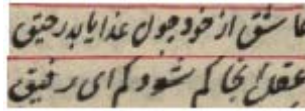 عاشق از خود چون غذا یابد رحیق
عقل آنجا کم شود کم ای رفیق